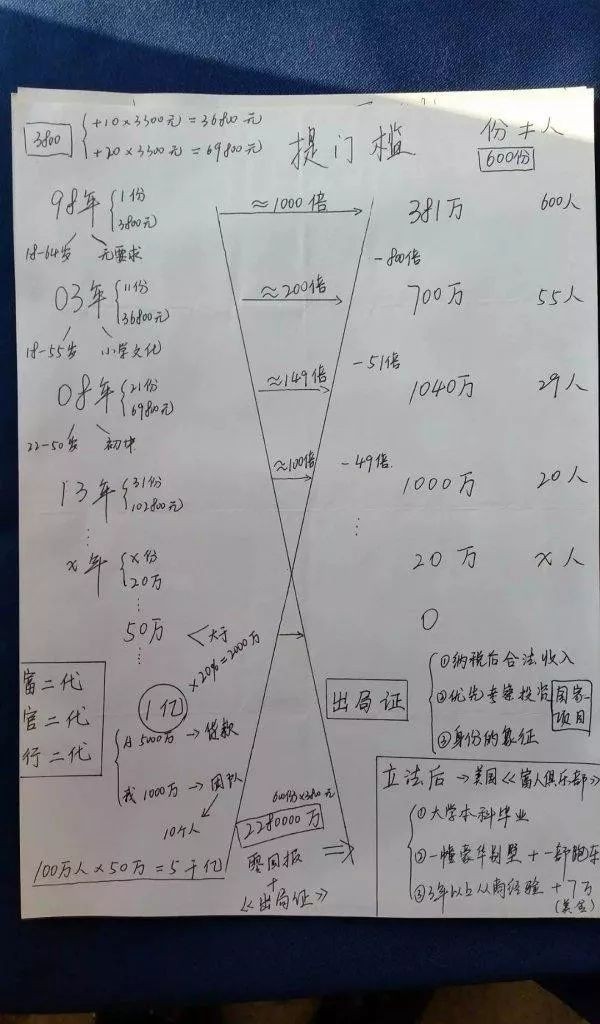 3800
+10×3300元=36800元
+20×3300元=69800元
提门槛
份≠人
600份
98年
1份
3800元
≈1000倍
381万
600人
18-64岁
无要求
-800倍
03年
11份
36800元
≈200倍
700万
55人
18-55岁
小学文化
-51倍
08年
21份
69800元
≈149倍
1040万
29人
22-50岁
初中
-49倍
13年
31份
102800元
≈100倍
1000万
20人
x年
x份
20万
20万
x人
50万
大于
0
×20%=2000万
富二代
官二代
行二代
1亿
出局证
①纳税后合法收入
②优先考察投资
国家项目
③身份的象征
5000万→贷款
我1000万→团队
10个人
600份×3800元
2280000万
零回报
+
《出局证》
100万人×50万=5千亿
立法后→美国《富人俱乐部》
①大学本科毕业
②一幢豪华别墅+一部跑车
③3年以上从商经验+7万
(美金)